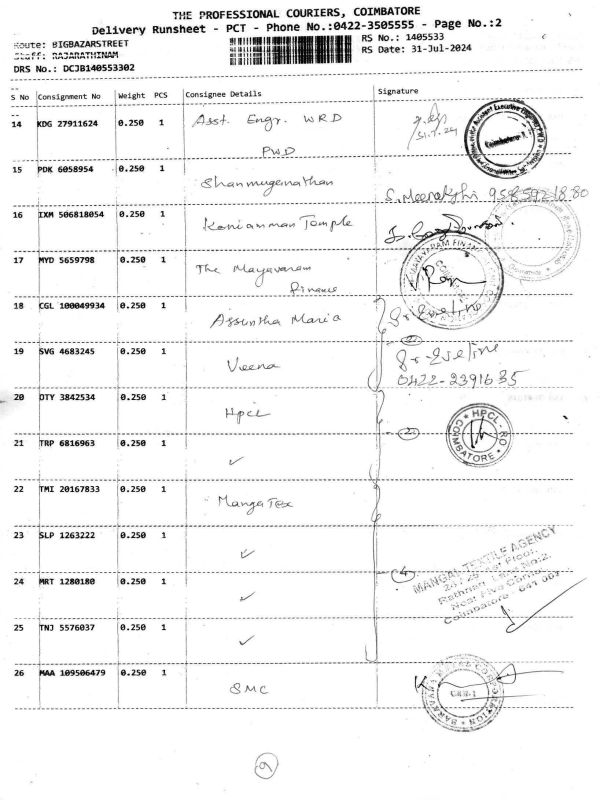 THE PROFESSIONAL COURIERS, COIMBATORE
Delivery Runsheet - PCT - Phone No.:0422-3505555 - Page No.:2
Route: BIGBAZARSTREET
RS No.: 1405533
Staff: RAJARATHINAM
RS Date: 31-Jul-2024
DRS No.: DCJB140553302
S No Consignment No Weight PCS Consignee Details Signature
14 KDG 27911624 0.250 1 Asst. Engr. WRD
PWD
31.7.24
15 PDK 6058954 0.250 1 Shanmuganathan
9585921880
16 IXM 506818054 0.250 1 Koniamman Temple
17 MYD 5659798 0.250 1 The Mayavaram
finance
18 CGL 100049934 0.250 1 Assuntha Maria
2
19 SVG 4683245 0.250 1 Veena
0422-2391635
20 DTY 3842534 0.250 1 Hpcl
HPCL - RO
COIMBATORE
2
21 TRP 6816963 0.250 1 ✓
22 TMI 20167833 0.250 1 Manga Tex
23 SLP 1263222 0.250 1 ✓
MANGAI TEXTILE AGENCY
1st Floor,
4
24 MRT 1280180 0.250 1 ✓
Coimbatore - 641 001
25 TNJ 5576037 0.250 1 ✓
26 MAA 109506479 0.250 1 SMC
9